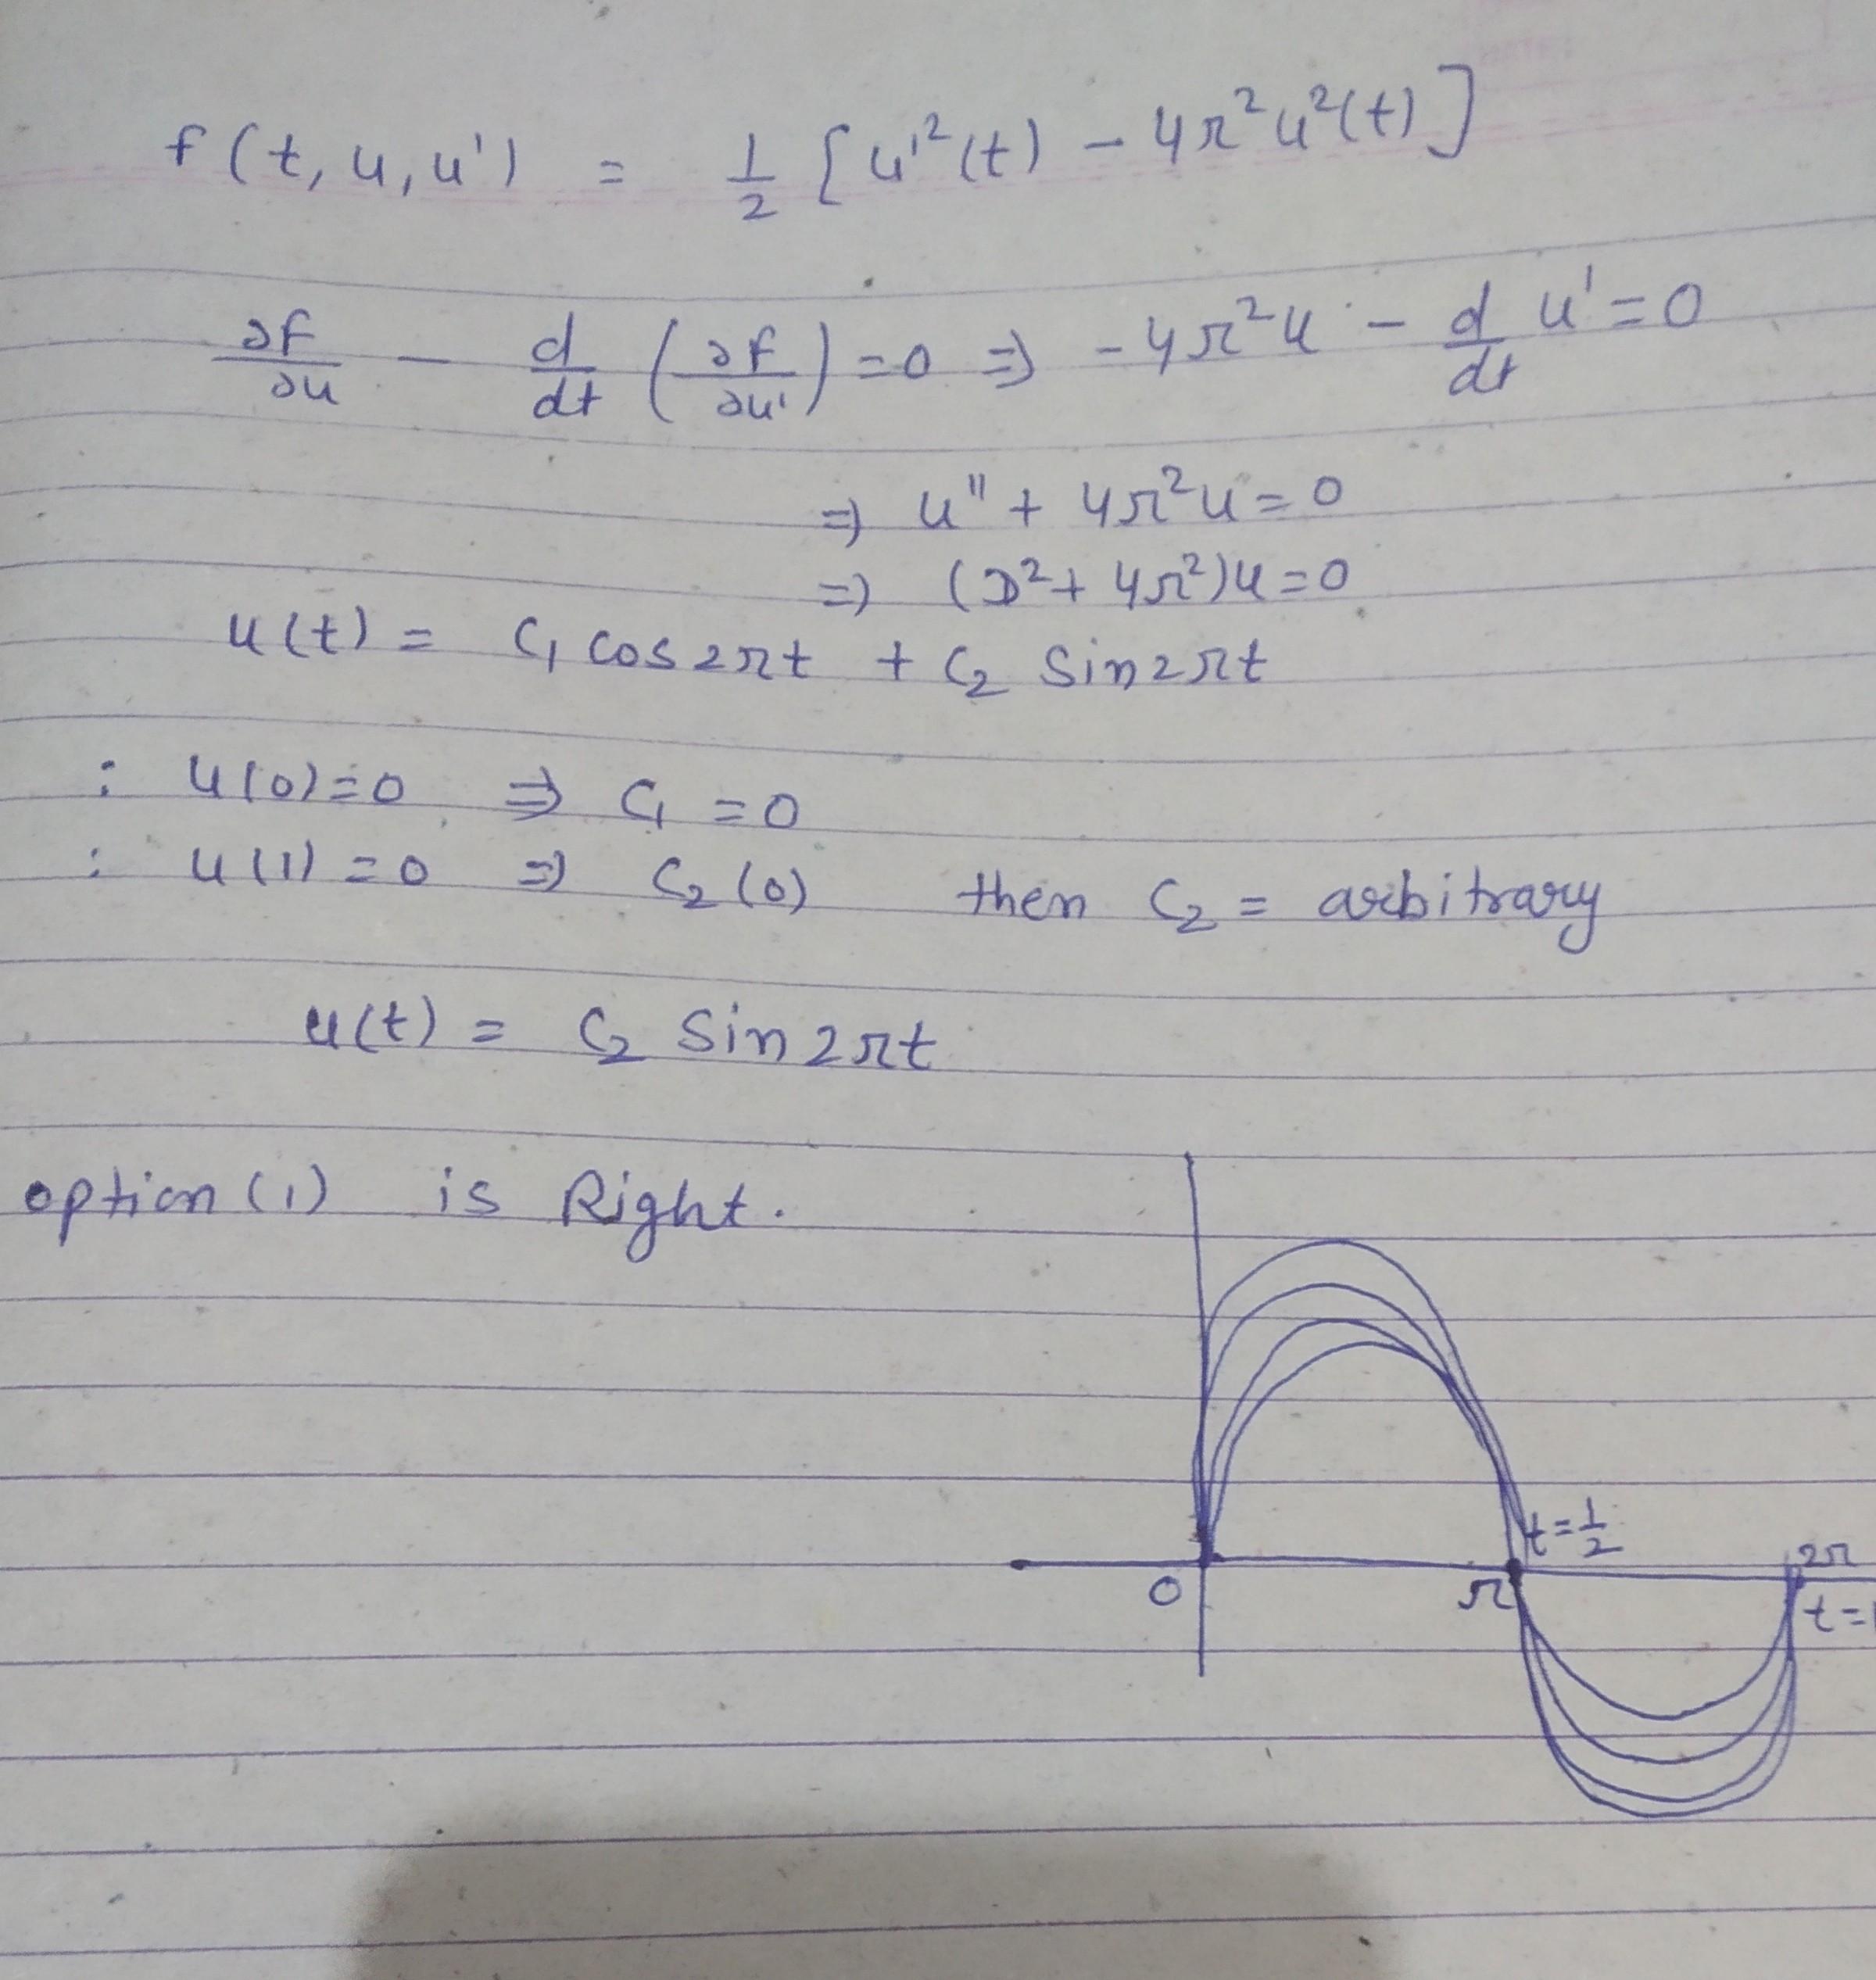 f(t, u, u') = 1/2 [u'²(t) - 4π²u²(t)]
∂f/∂u - d/dt (∂f/∂u') = 0 ⇒ -4π²u - d/dt u' = 0
⇒ u'' + 4π²u = 0
⇒ (D² + 4π²)u = 0
u(t) = C₁ cos 2πt + C₂ Sin 2πt
: u(0) = 0 ⇒ C₁ = 0
: u(1) = 0 ⇒ C₂(0) then C₂ = arbitrary
u(t) = C₂ Sin 2πt
option (1) is Right.
t = 1/2
0 π 2π
t = 1